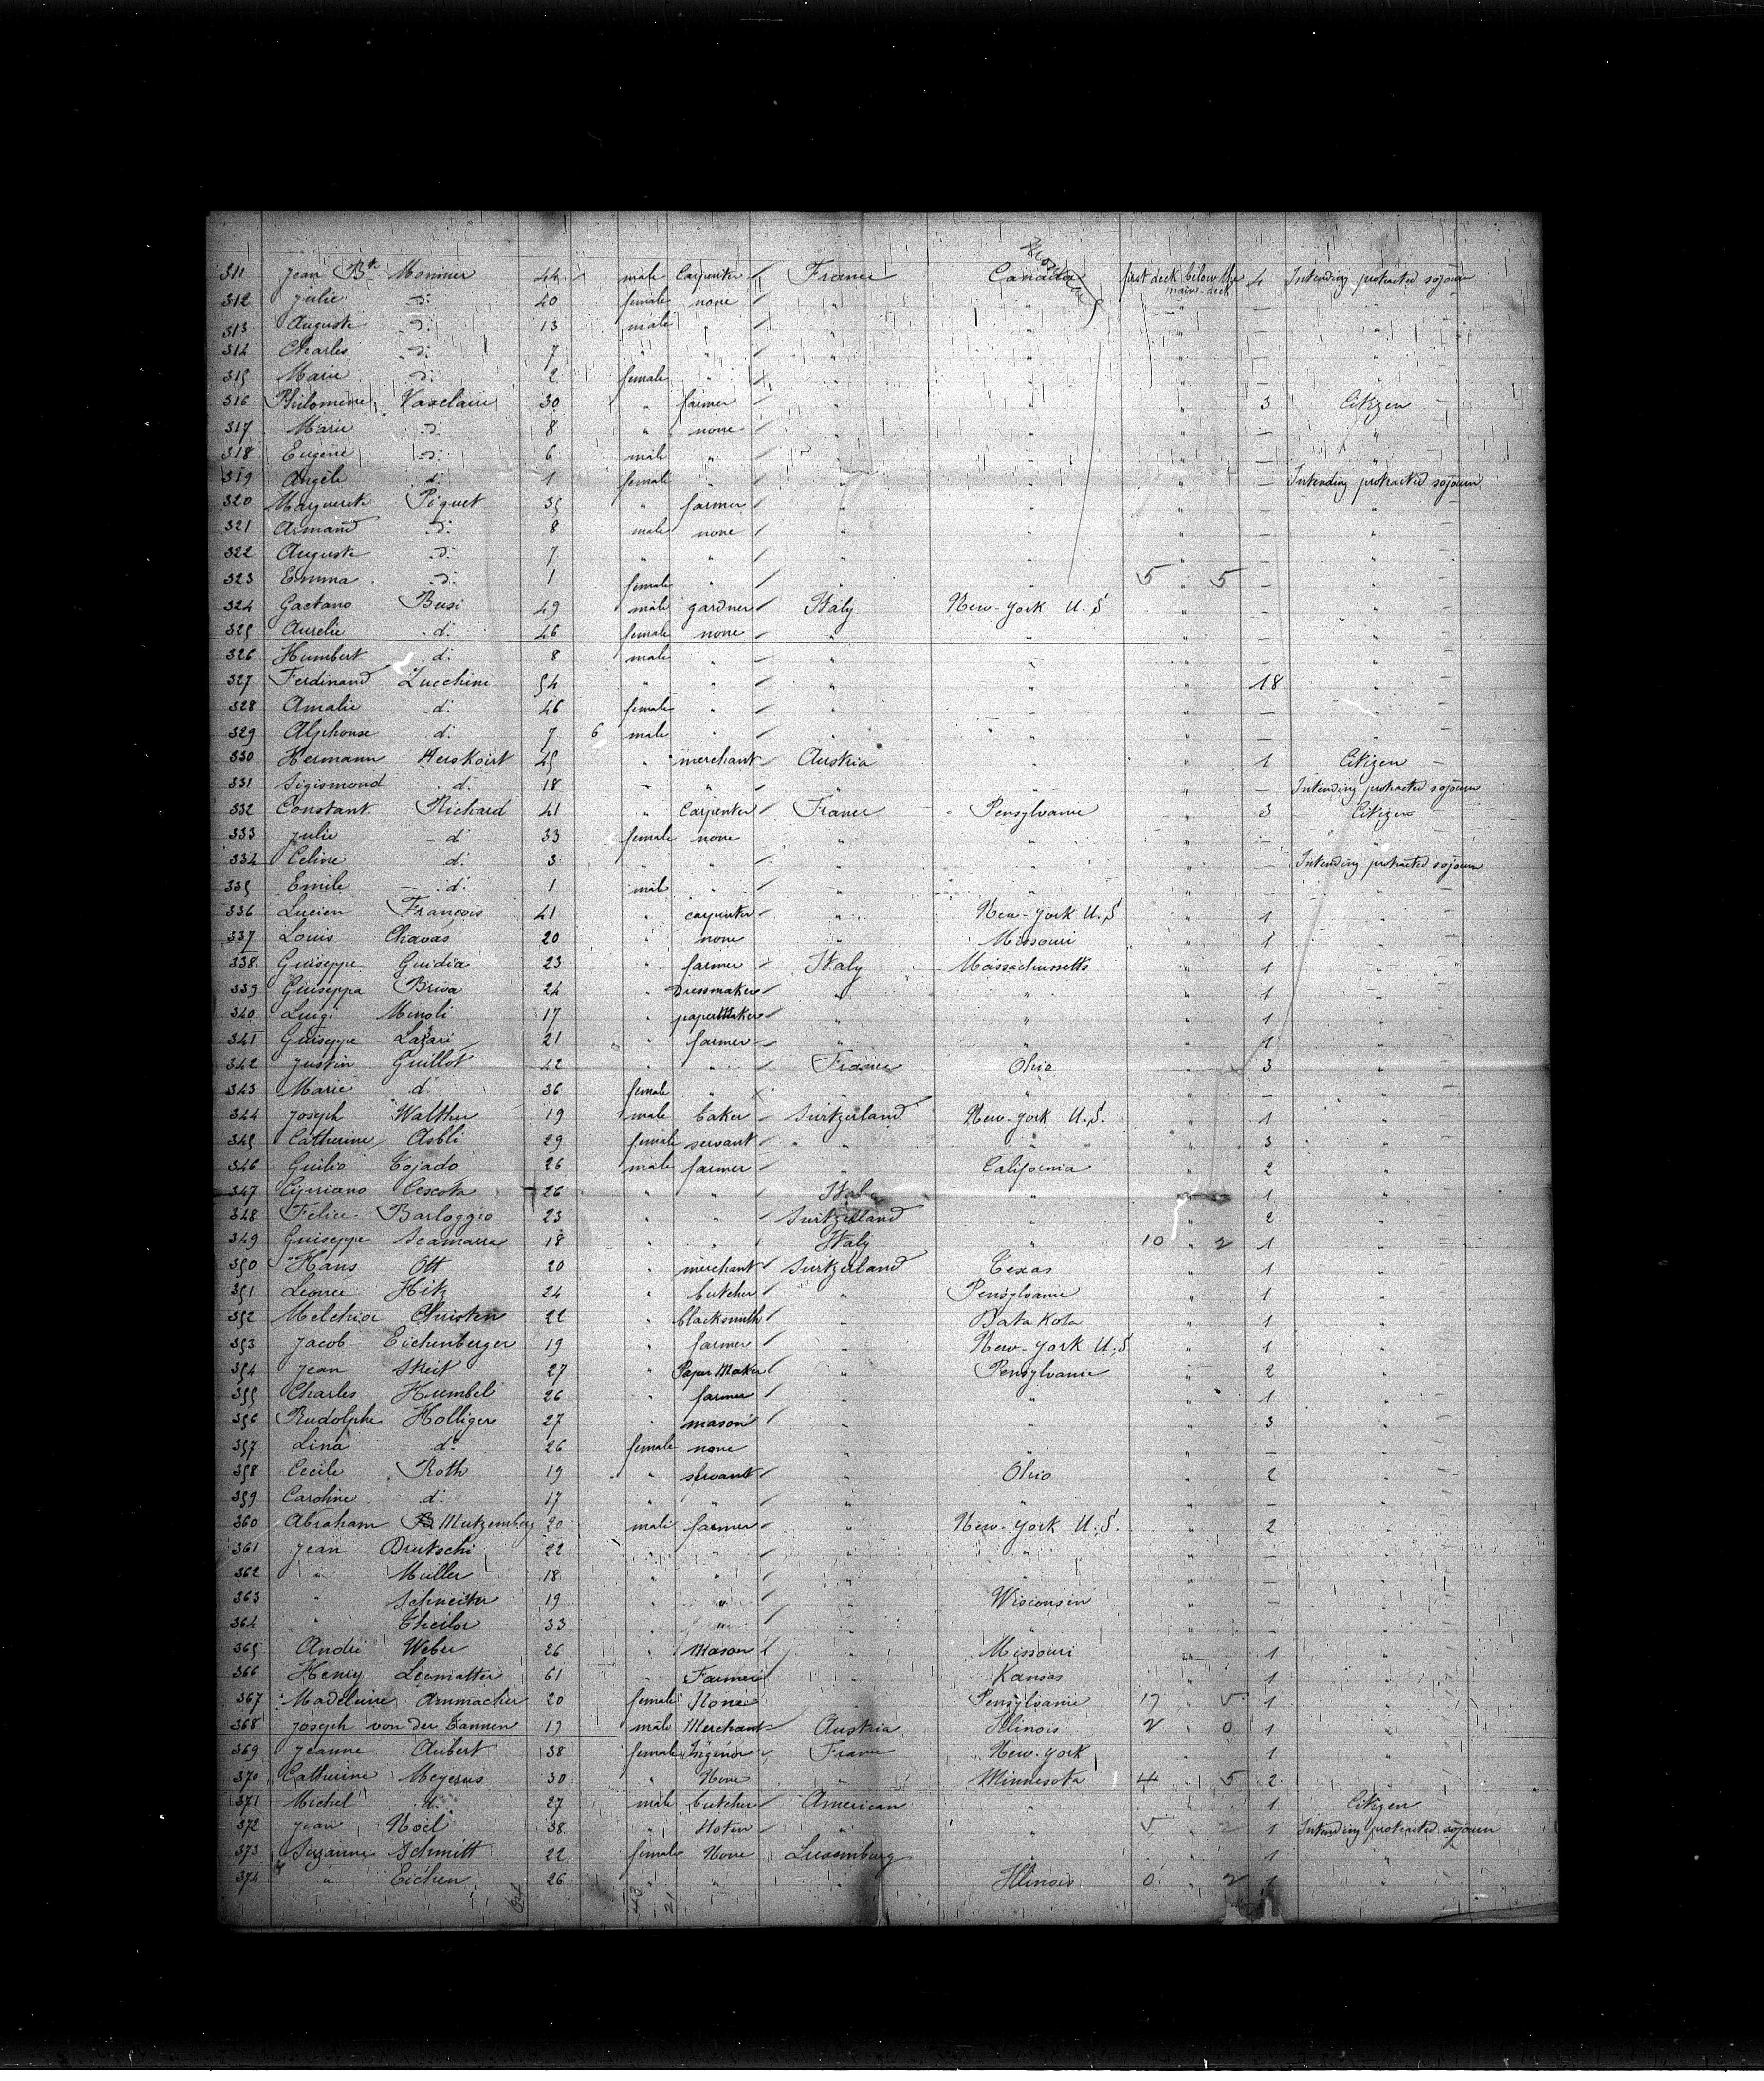 311 Jean Bte Monnier 44 male Carpenter France Canada first deck below the main-deck 4 Intending protracted sojourn
312 Julie d: 40 female none " " " — "
313 Auguste d: 13 male " " " " — "
314 Charles d: 7 " " " " " — "
315 Marie d: 2 female " " " " — "
316 Philomène Vaxelaire 30 " farmer " " " 3 Citizen
317 Marie d: 8 " none " " " — "
318 Eugene d: 6 male " " " " — "
319 Angèle d: 1 female " " " " — Intending protracted sojourn
320 Marguerite Piquet 35 " farmer " " " — "
321 Armand d: 8 male none " " " — "
322 Auguste d: 7 " " " " " — "
323 Emma d: 1 female " " " 5 " 5 — "
324 Gaetano Busi 49 male gardner Italy New-York U.S " — "
325 Aurelie d: 46 female none " " " — "
326 Humbert d: 8 male " " " " — "
327 Ferdinand Zucchini 54 " " " " " 18 "
328 Amalie d: 46 female " " " " — "
329 Alphonse d: 7 6 male " " " " — "
330 Hermann Herskovit 45 " merchant Austria " " 1 Citizen
331 Sigismond d: 18 " " " " " — Intending protracted sojourn
332 Constant Richard 41 " Carpenter France Pensylvanie " 3 Citizen
333 Julie d 33 female none " " " — "
334 Celine d: 3 " " " " " — Intending protracted sojourn
335 Emile d: 1 male " " " " — "
336 Lucien François 41 " carpenter " New-York U.S " 1 "
337 Louis Chavas 20 " none " Missouri " 1 "
338 Guiseppe Guidia 23 " farmer Italy Massachussetts " 1 "
339 Giuseppa Briva 24 " Dressmaker " " " 1 "
340 Luigi Minoli 17 " paperMaker " " " 1 "
341 Guiseppe Lazari 21 " farmer " " " 1 "
342 Justin Guillot 42 " " France Ohio " 3 "
343 Marie d 36 female " " " " — "
344 Joseph Walther 19 male baker Switzerland New-York U.S. " 1 "
345 Catherine Asbli 29 female servant " " " 3 "
346 Guilio Tojado 26 male farmer " California " 2 "
347 Cipriano Cescota 26 " " Italy " " 1 "
348 Felice Barloggio 23 " " Switzerland " " 2 "
349 Guiseppe Scamarra 18 " " Italy " 10 " 2 1 "
350 Hans Ott 20 " merchant Switzerland Texas " 1 "
351 Leonce Hitz 24 " butcher " Pensylvanie " 1 "
352 Melchior Christen 22 " blacksmith " Data Kota " 1 "
353 Jacob Eichenberger 19 " farmer " New-York U.S " 1 "
354 Jean Streit 27 " Paper Maker " Pensylvanie " 2 "
355 Charles Humbel 26 " farmer " " " 1 "
356 Rudolphe Holliger 27 " mason " " " 3 "
357 Lina d: 26 female none " " " — "
358 Cecile Roth 19 " servant " Ohio " 2 "
359 Caroline d: 17 " " " " " — "
360 Abraham Mutzemberg 20 male farmer " New-York U.S. " 2 "
361 Jean Drutschi 22 " " " " " — "
362 " Muller 18 " " " " " — "
363 " Schneiter 19 " " " Wisconsin " — "
364 " Theiler 33 " " " " " — "
365 André Weber 26 " Mason " Missouri " 1 "
366 Henry Leematter 61 " Farmer " Kansas " 1 "
367 Madeleine Ammacher 20 female None " Pensylvanie 17 " 5 1 "
368 Joseph von der Tannen 19 male Merchant Austria Illinois 2 " 0 1 "
369 Jeanne Aubert 38 female France New-York 1 "
370 Catherine Meyerus 30 " None " Minnesota 4 " 5 2 "
371 Michel d: 27 male butcher American " " 1 Citizen
372 Jean Noël 38 " " " 5 " 2 1 Intending protracted sojourn
373 Suzanne Schmitt 22 female None Luxemburg " " 1 "
374 " Eichen 26 " " " Illinois 0 " 2 1 "
43 21